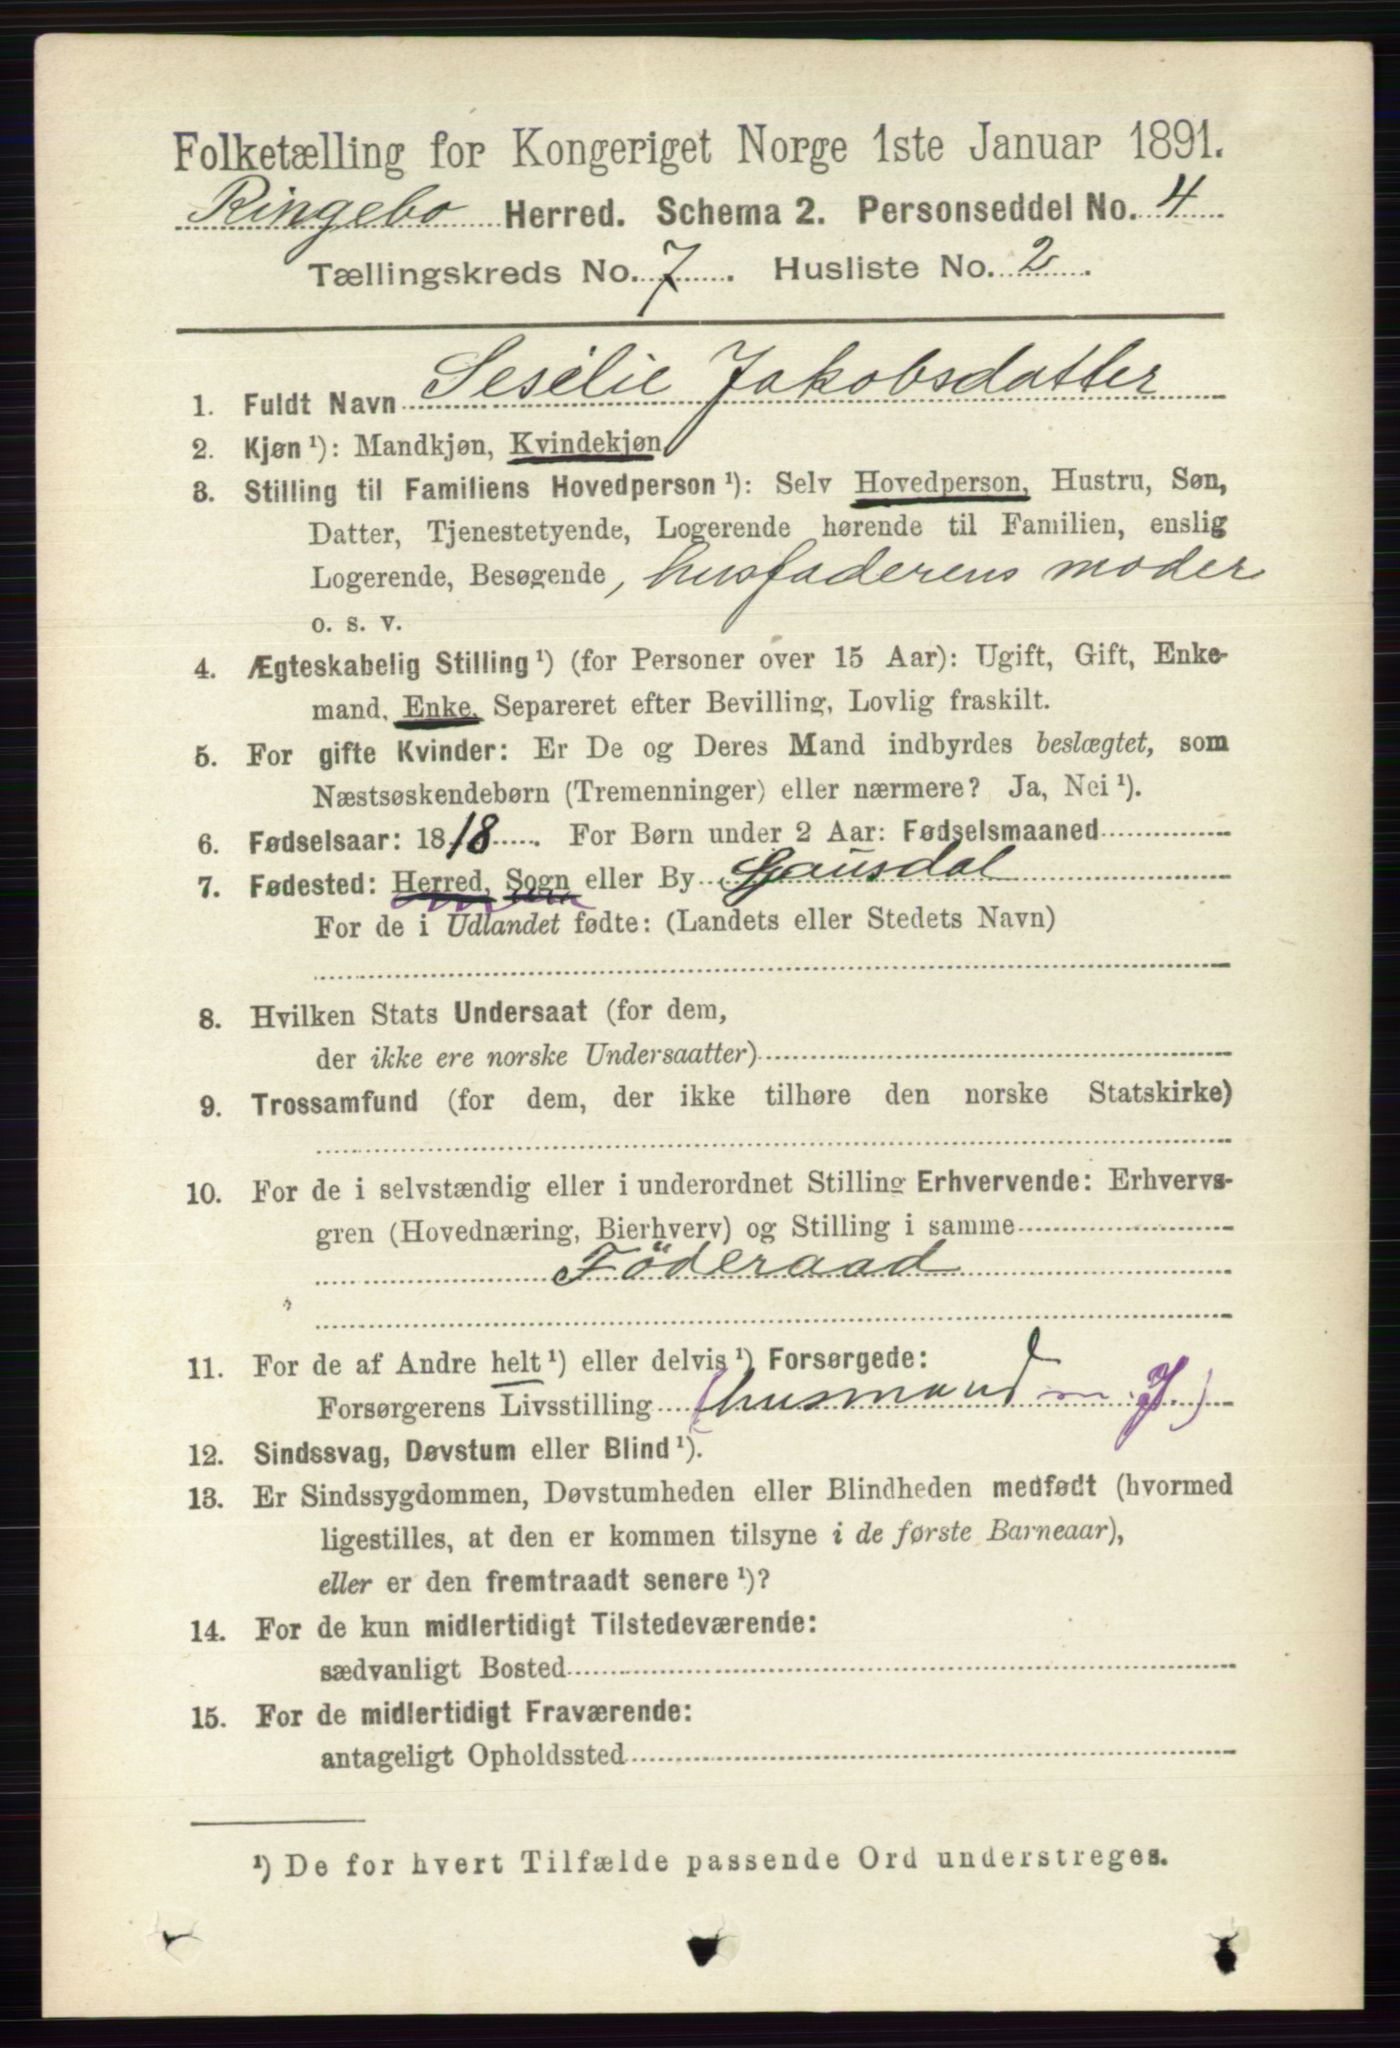 Folketælling for Kongeriget Norge 1ste Januar 1891.
Ringebo Herred. Schema 2. Personseddel No. 4
Tællingskreds No. 7. Husliste No. 2.
1. Fuldt Navn Sesélie Jakobsdatter
2. Kjøn ¹): Mandkjøn, Kvindekjøn
3. Stilling til Familiens Hovedperson ¹): Selv Hovedperson, Hustru, Søn,
Datter, Tjenestetyende, Logerende hørende til Familien, enslig
Logerende, Besøgende, husfaderens moder
o. s. v.
4. Ægteskabelig Stilling ¹) (for Personer over 15 Aar): Ugift, Gift, Enke-
mand, Enke, Separeret efter Bevilling, Lovlig fraskilt.
5. For gifte Kvinder: Er De og Deres Mand indbyrdes beslægtet, som
Næstsøskendebørn (Tremenninger) eller nærmere? Ja, Nei ¹).
6. Fødselsaar: 1818. For Børn under 2 Aar: Fødselsmaaned
7. Fødested: Herred, Sogn eller By Gausdal
For de i Udlandet fødte: (Landets eller Stedets Navn)
8. Hvilken Stats Undersaat (for dem,
der ikke ere norske Undersaatter)
9. Trossamfund (for dem, der ikke tilhøre den norske Statskirke)
10. For de i selvstændig eller i underordnet Stilling Erhvervende: Erhvervs-
gren (Hovednæring, Bierhverv) og Stilling i samme
Föderaad
11. For de af Andre helt ¹) eller delvis ¹) Forsørgede:
Forsørgerens Livsstilling (husmand m. J.)
12. Sindssvag, Døvstum eller Blind ¹).
13. Er Sindssygdommen, Døvstumheden eller Blindheden medfødt (hvormed
ligestilles, at den er kommen tilsyne i de første Barneaar),
eller er den fremtraadt senere ¹)?
14. For de kun midlertidigt Tilstedeværende:
sædvanligt Bosted
15. For de midlertidigt Fraværende:
antageligt Opholdssted
¹) De for hvert Tilfælde passende Ord understreges.